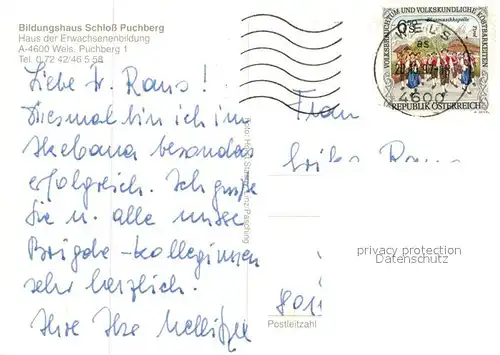 Bildungshaus Schloß Puchberg
Haus der Erwachsenenbildung
A-4600 Wels, Puchberg 1
Tel. 0 72 42/46 5 58
Liebe Fr. Raus!
Diesmal bin ich im
Ikebana besonders
erfolgreich. Ich grüße
Sie u. alle unsere
Bridge-kolleginnen
sehr herzlich.
Ihre Ilse
Frau
Postleitzahl
VOLKSBRAUCHTUM UND VOLKSKUNDLICHE KOSTBARKEITEN
Blasmusikkapelle
REPUBLIK ÖSTERREICH
WELS
4600
privacy protection
Datenschutz